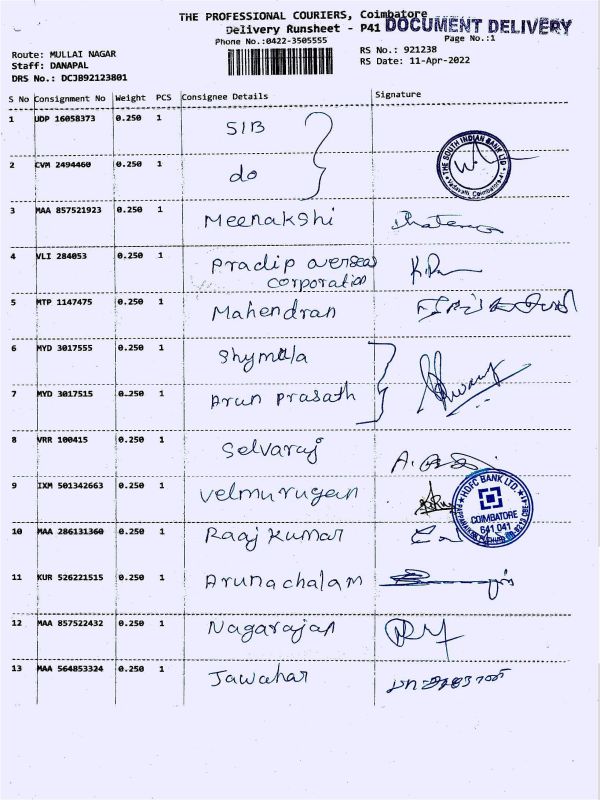 THE PROFESSIONAL COURIERS, Coimbatore
Delivery Runsheet - P41 DOCUMENT DELIVERY
Phone No.:0422-3505555 Page No.:1
Route: MULLAI NAGAR RS No.: 921238
Staff: DANAPAL RS Date: 11-Apr-2022
DRS No.: DCJB92123801
S No Consignment No Weight PCS Consignee Details Signature
1 UDP 16058373 0.250 1 SIB
2 CVM 2494460 0.250 1 do
THE SOUTH INDIAN BANK LTD
3 MAA 857521923 0.250 1 Meenakshi
4 VLI 284053 0.250 1 Pradip overseas
corporation
5 MTP 1147475 0.250 1 Mahendran
6 MYD 3017555 0.250 1 Shymala
7 MYD 3017515 0.250 1 Arun Prasath
8 VRR 100415 0.250 1 Selvaraj
9 IXM 501342663 0.250 1 Velmurugan
HDFC BANK LTD.
COIMBATORE
641 041
10 MAA 286131360 0.250 1 Raaj Kumar
11 KUR 526221515 0.250 1 Arunachalam
12 MAA 857522432 0.250 1 Nagarajan
13 MAA 564853324 0.250 1 Jawahar